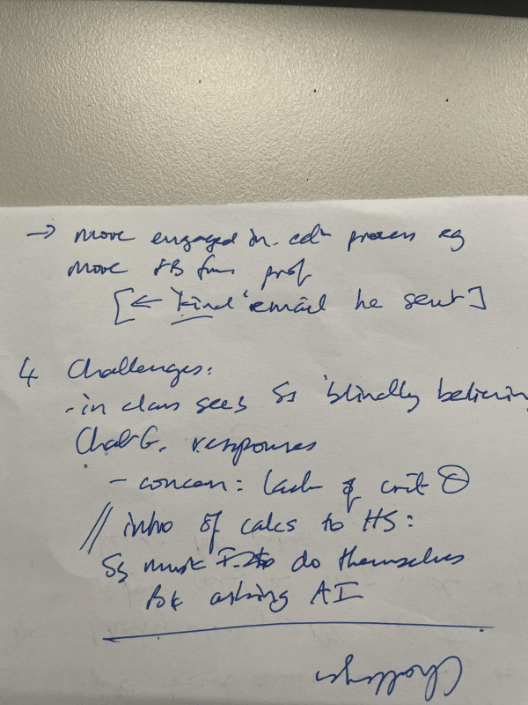 → more engaged in. edn process eg
more FB from prof
[← 'kind' email he sent]
4 Challenges:
- in class sees Ss 'blindly believin
ChatG. responses
- concern: lack of crit
// intro of calcs to HS:
Ss must do themselves
asking AI
Challenges